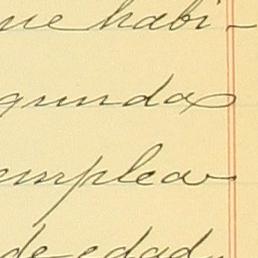 ue habi-
gundas
emplea
de edad